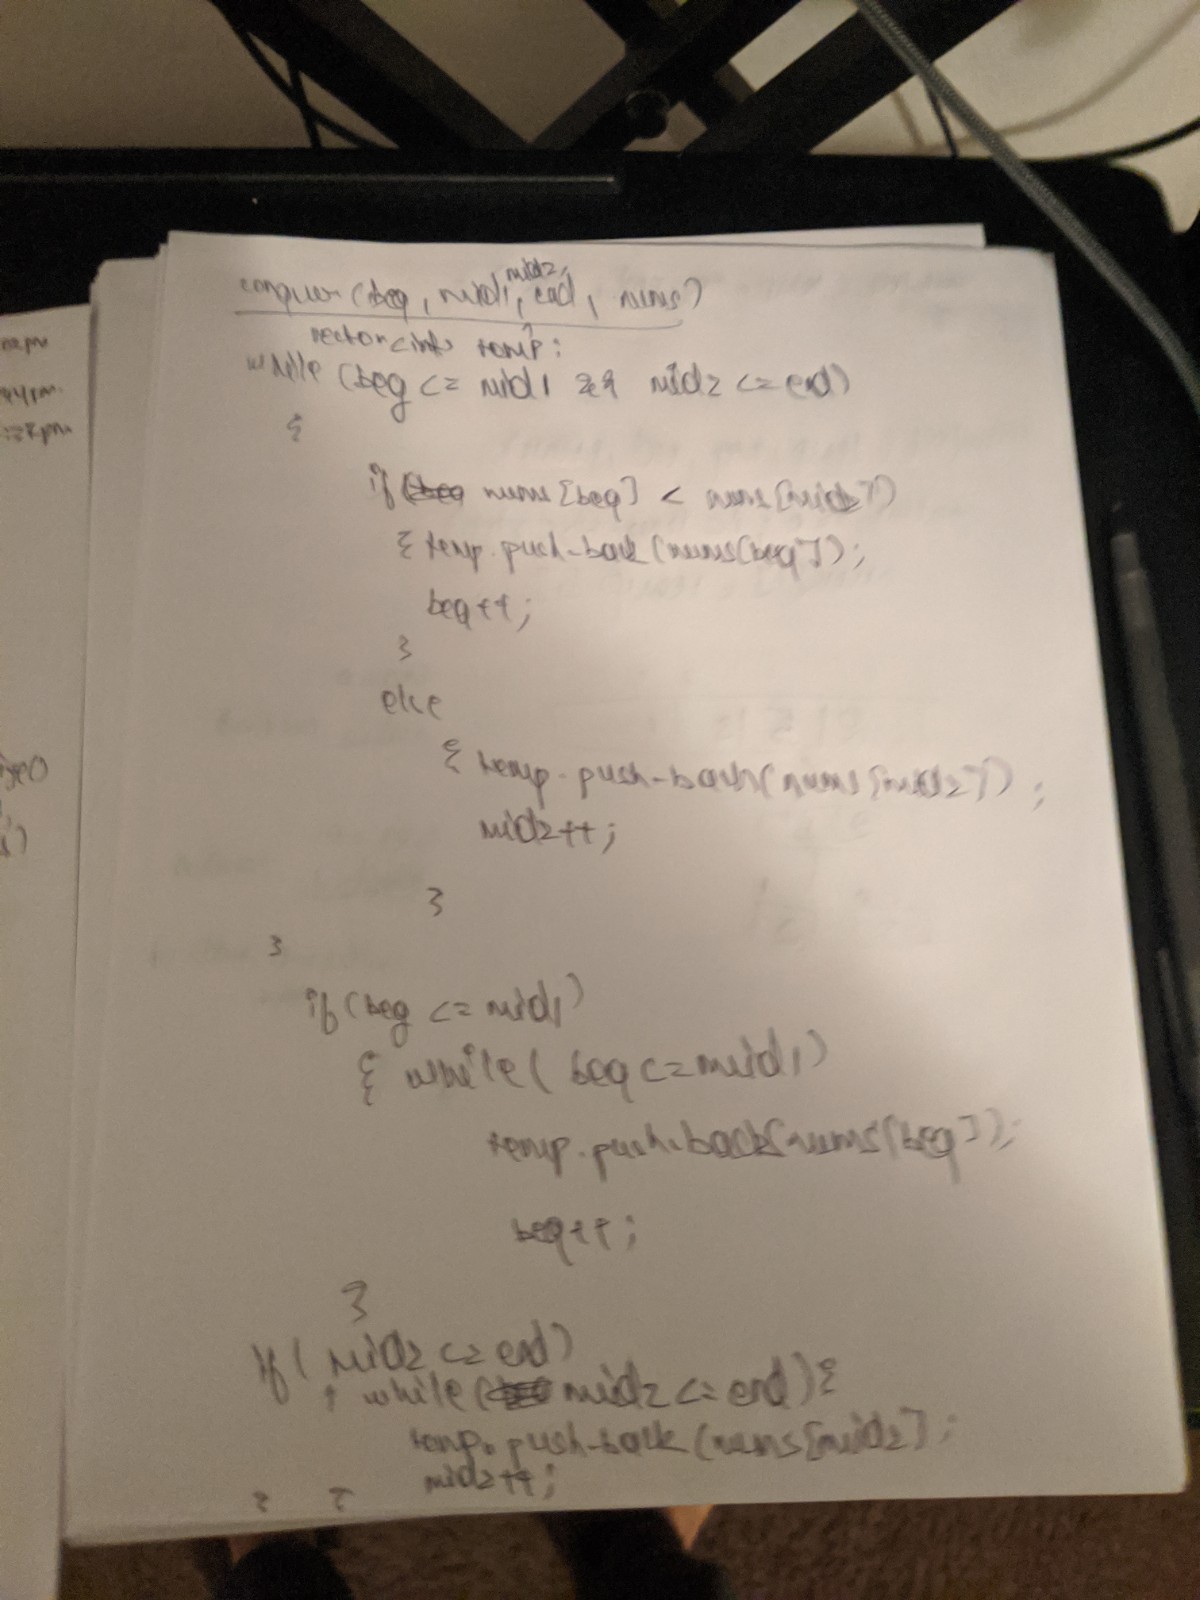 conquer (beg, mid1, mid2, end, nums)
vector<int> temp;
while (beg <= mid1 && mid2 <= end)
{
if ( nums [beg] < nums [mid2])
{ temp.push-back (nums[beg]);
beg++;
}
else
{ temp.push-back (nums [mid2]);
mid2++;
}
}
if (beg <= mid1)
{ while ( beg <= mid1)
temp.push-back(nums[beg]);
beg++;
}
If ( mid2 <= end)
{ while ( mid2 <= end) {
temp.push-back (nums[mid2];
mid2++;
} }